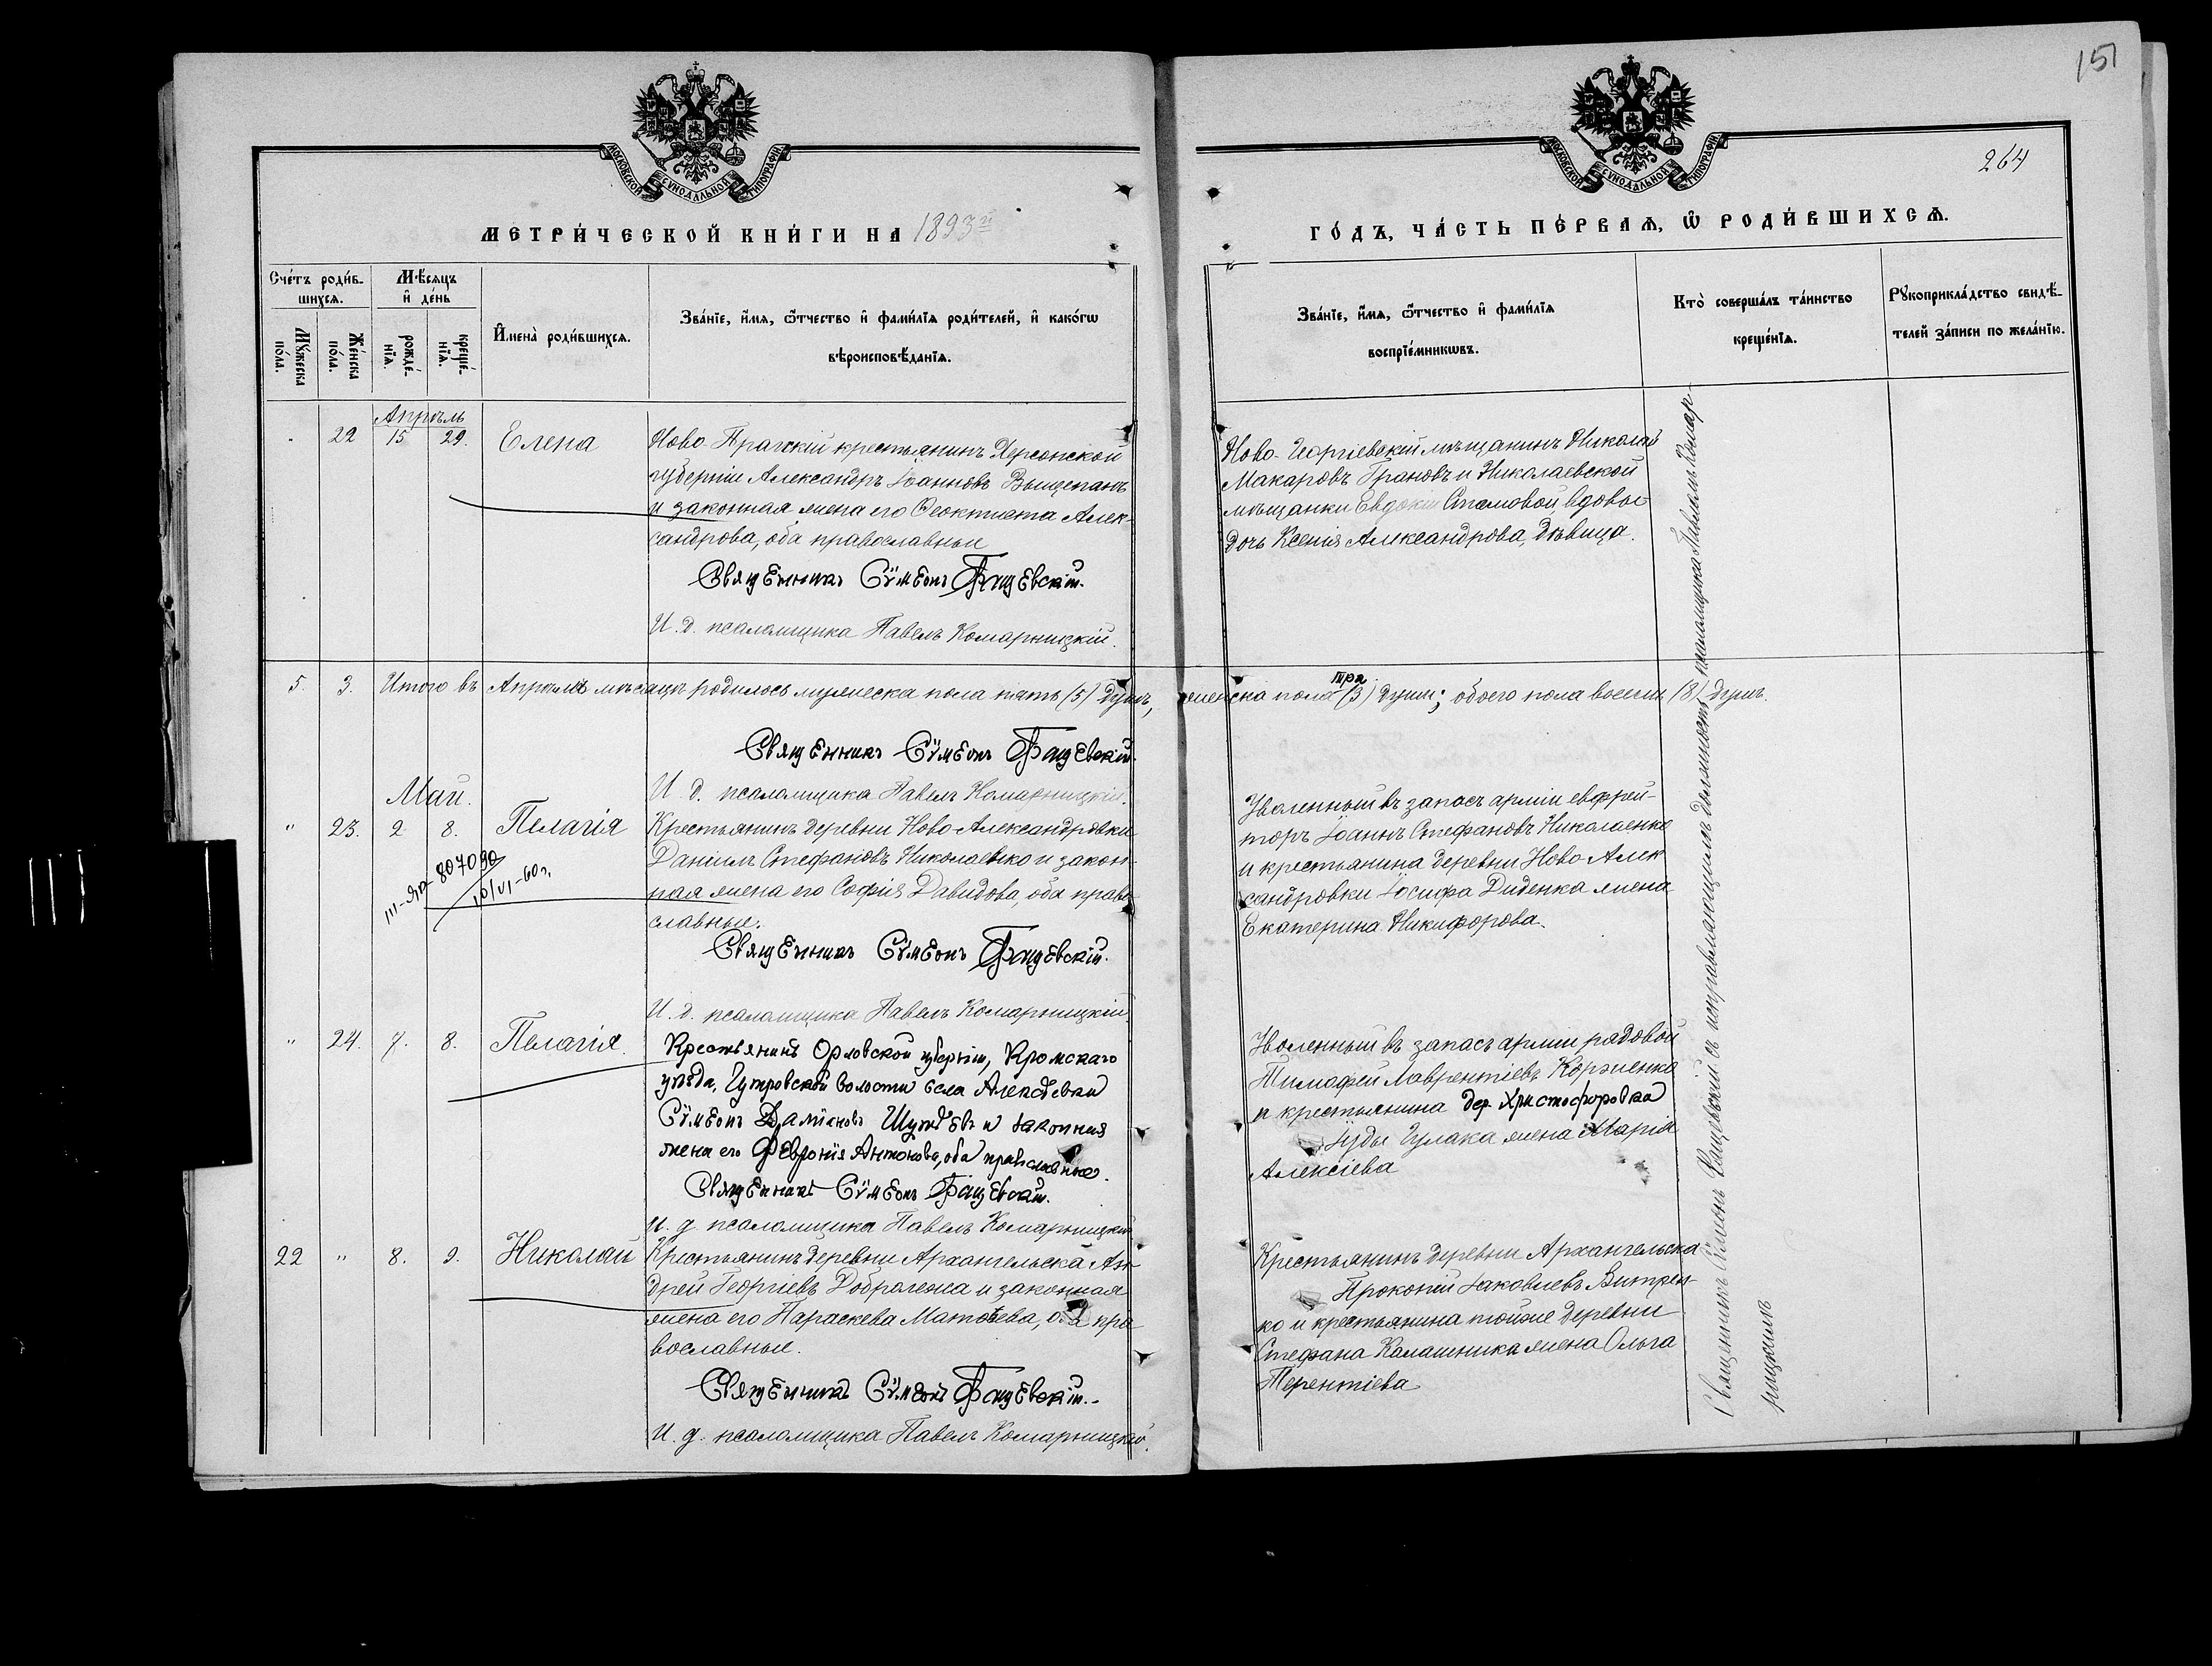 151
264
МОСКОВСКОЙ СѴНОДАЛЬНОЙ ТИПОГРАФІИ
МОСКОВСКОЙ СѴНОДАЛЬНОЙ ТИПОГРАФІИ
МЕТРИ́ЧЕСКОЙ КНИ́ГИ НА 1893й
ГО́ДЪ, ЧА́СТЬ ПЕ́РВАѦ, Ѿ РОДИ́ВШИХСѦ.
Сче́тъ роди́в-
шихсѧ.
Мѣ́сѧцъ
и҆ де́нь
Мꙋ́жеска
по́ла.
Же́нска
по́ла.
рожде́-
нїѧ.
креще́-
нїѧ.
И҆мена̀ роди́вшихсѧ.
Зва́нїе, и҆́мѧ, ѻ҆́тчество и҆ фами́лїѧ роди́телей, и҆ како́гѡ
вѣроисповѣ́данїѧ.
Зва́нїе, и҆́мѧ, ѻ҆́тчество и҆ фами́лїѧ
воспрїе́мникѡвъ.
Кто̀ соверша́лъ та́инство
креще́нїѧ.
Рꙋкоприкла́дство свидѣ́-
телей за́писи по жела́нїю.
Апрѣль
22 15 29. Елена
Ново-Прагскій крестьянинъ Херсонской
губерніи Александръ Іоанновъ
и законная жена его Ѳеоктиста Алек-
сандрова, оба православные
Священникъ Сѵмеонъ Фащевскій.
И. д. псаломщика Павелъ Комарницкій.
Ново-Георгіевскій мѣщанинъ Николай
Макаровъ Грановъ и Николаевской
мѣщанки Евдокіи Стамовой, вдовы
дочь Ксенія Александрова, дѣвица.
5. 3. Итого въ Апрѣлѣ мѣсяцѣ родилось мужеска пола пять (5) душъ, женска пола три (3) души; обоего пола восемь (8) душъ.
Священникъ Сѵмеонъ Фащевскій.
И. д. псаломщика Павелъ Комарницкій.
Май.
" 23. 2 8. Пелагія
Крестьянинъ деревни Ново-Александровки
Даніилъ Стефановъ Николаенко и закон-
ная жена его Софія Давидова, оба право-
славные.
III-ЯР-807090
10/VI-60г.
Священникъ Сѵмеонъ Фащевскій.
И. д. псаломщика Павелъ Комарницкій.
Уволенный въ запасъ арміи ефрей-
торъ Іоаннъ Стефановъ Николаенко
и крестьянина деревни Ново Алек
сандровки Іосифа Диденка жена
Екатерина Никифорова.
" 24. 7. 8. Пелагія.
Крестьянинъ Орловской губерніи, Кромскаго
уѣзда, волости села Алексѣевки
Сѵмеонъ Даміановъ и законная
жена его Феѵронія Антонова, оба православные.
Священникъ Сѵмеонъ Фащевскій.
И. д. псаломщика Павелъ Комарницкій
Уволенный въ запасъ арміи рядовой
Тимофей Лаврентіевъ Корженко
и крестьянина дер. Христофоровка
Іуды Гулака жена Марія
Алексіева
22 " 8. 9. Николай
Крестьянинъ деревни Архангельска Ан-
дрей Георгіевъ и законная
жена его Параскева Матѳеева, оба пра
вославные.
Священникъ Сѵмеонъ Фащевскій.
И. д. псаломщика Павелъ Комарницкій.
Крестьянинъ деревни Архангельска
Прокопій Іаковлевъ Витрен-
ко и крестьянина тойже деревни
Стефана Калашника жена Ольга
Терентіева
Священникъ Сѵмеонъ Фащевскій съ исправляющимъ должность псаломщика Павломъ Комар-
ницкимъ